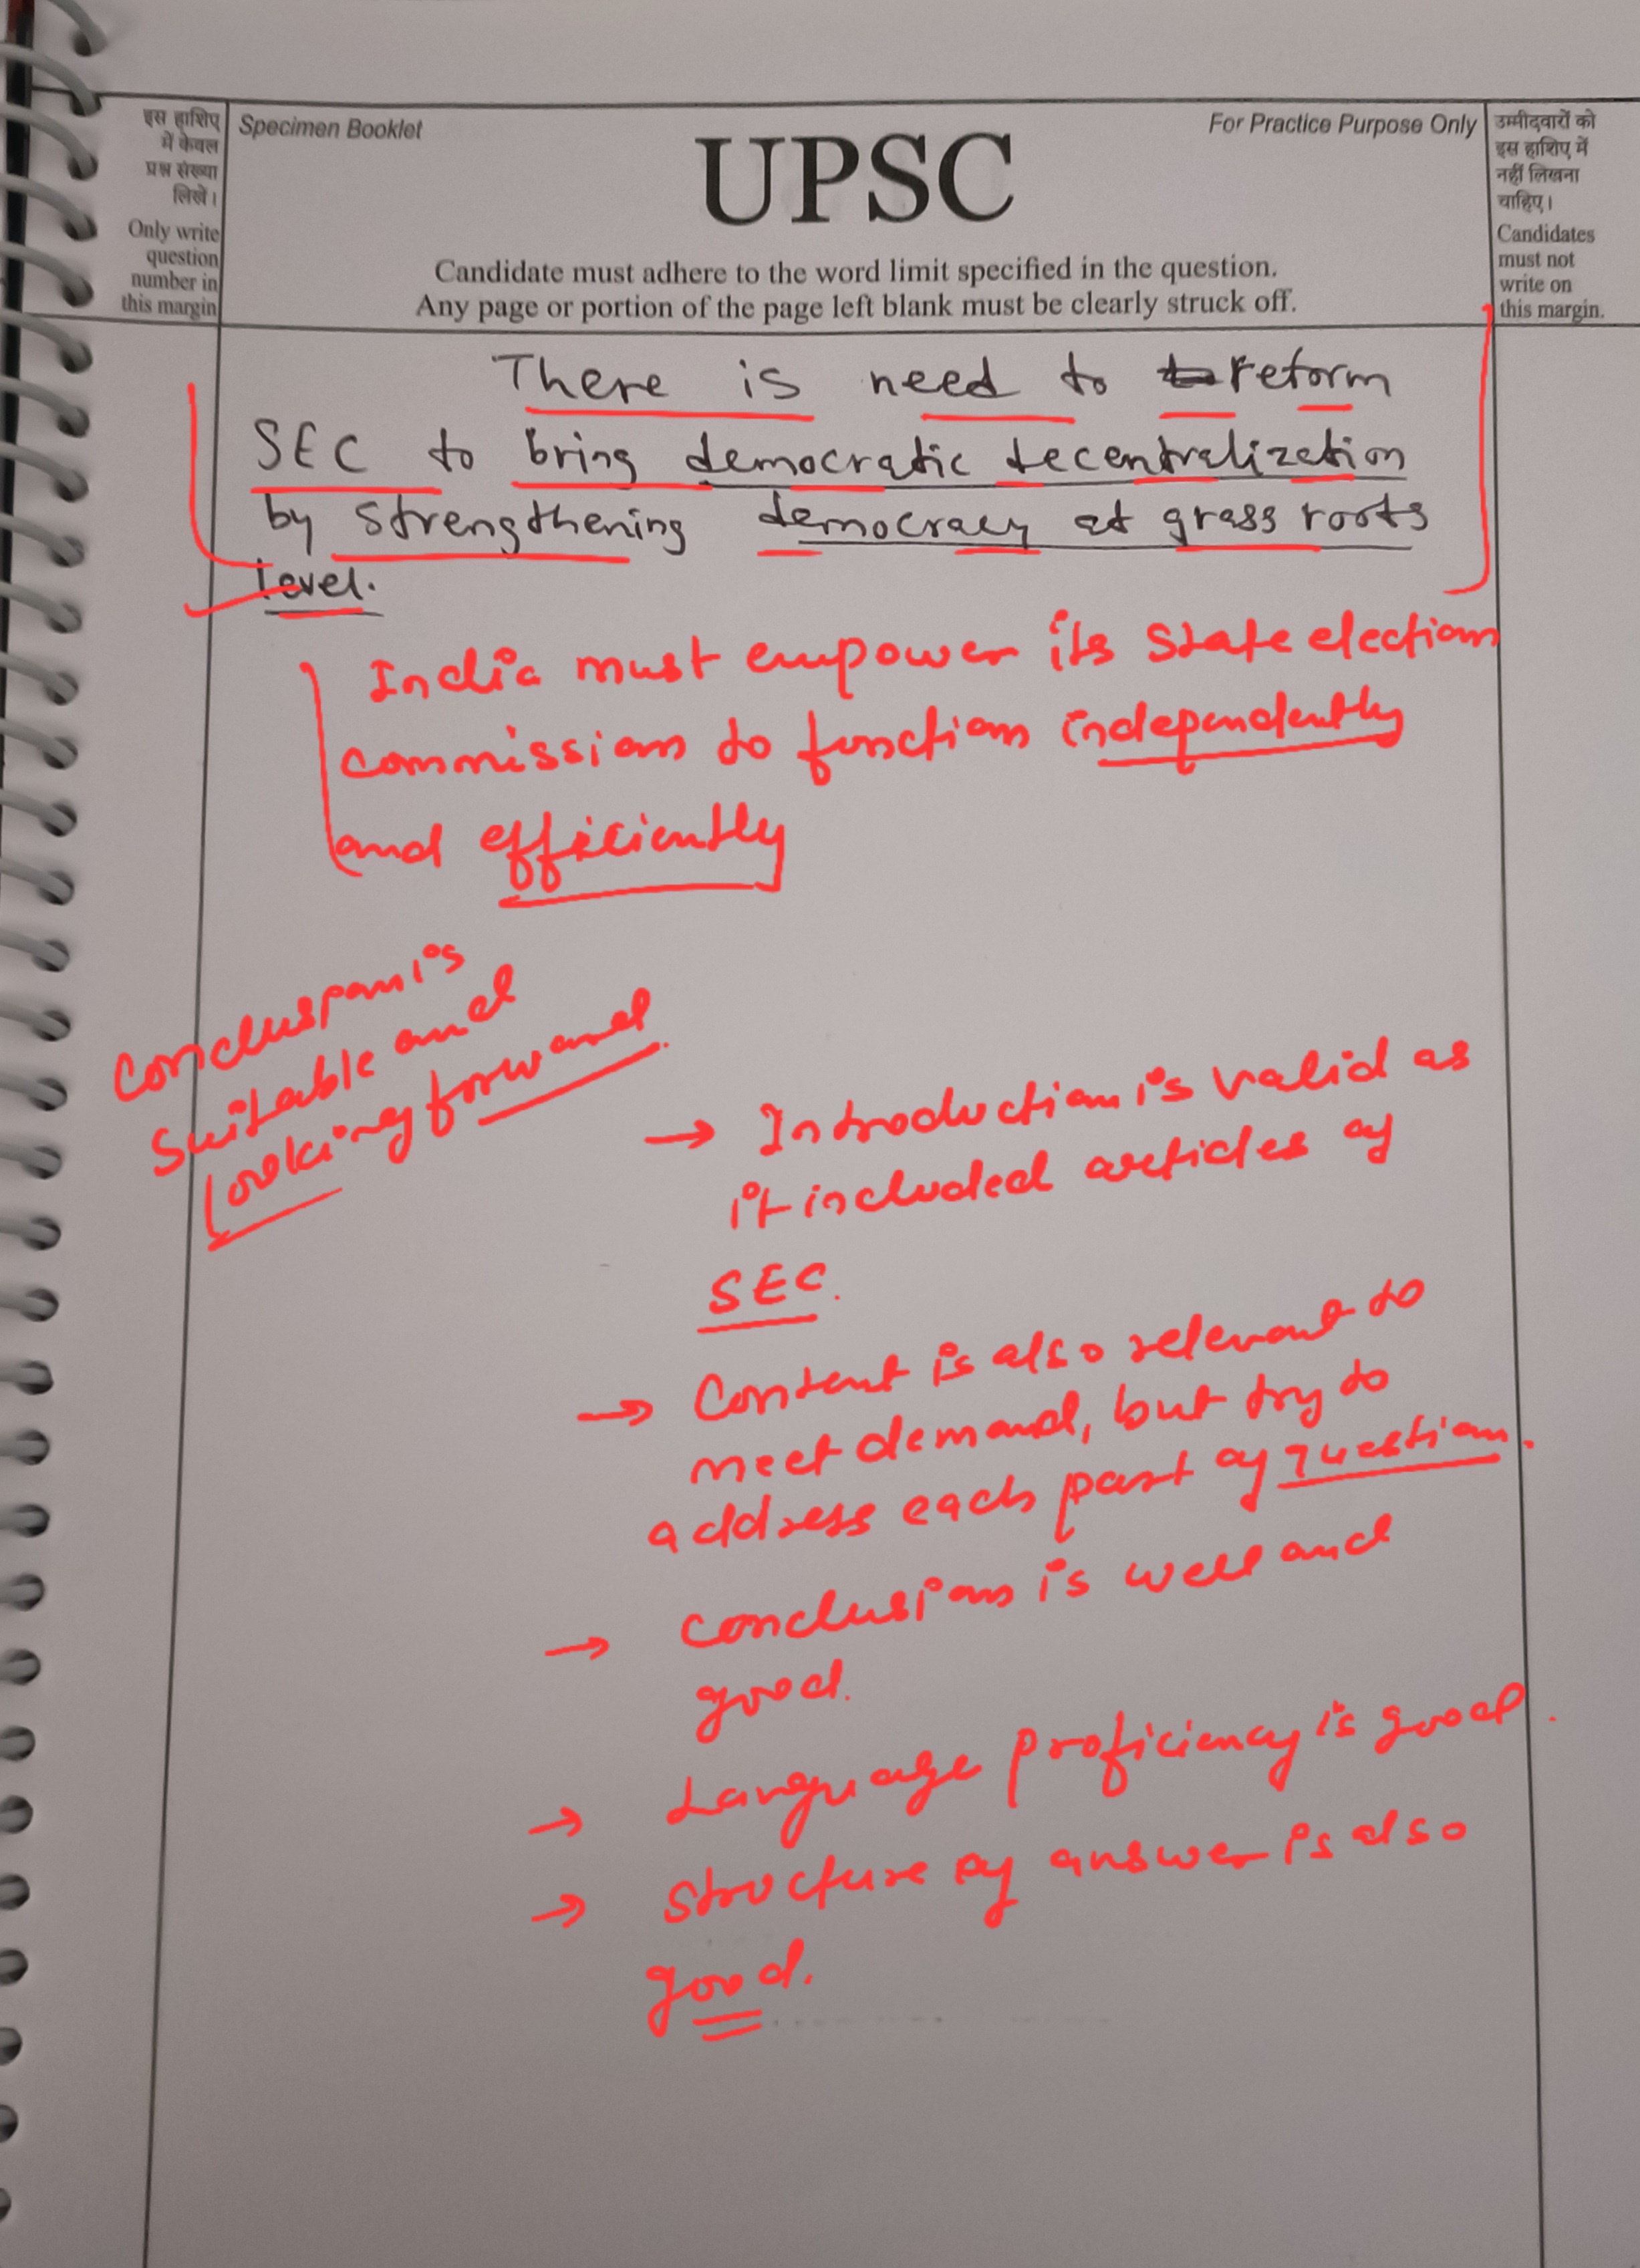 इस हाशिए
में केवल
प्रश्न संख्या
लिखें।
Only write
question
number in
this margin
Specimen Booklet
For Practice Purpose Only
UPSC
Candidate must adhere to the word limit specified in the question.
Any page or portion of the page left blank must be clearly struck off.
उम्मीदवारों को
इस हाशिए में
नहीं लिखना
चाहिए।
Candidates
must not
write on
this margin.
There is need to reform
SEC to bring democratic decentralization
by strengthening democracy at grass roots
level.
India must empower its state election
commission to function independently
and efficiently
Conclusion is
suitable and
looking forward
→ Introduction is valid as
it included articles of
SEC.
→ Content is also relevant to
meet demand, but try to
address each part of question.
→ Conclusion is well and
good.
→ Language proficiency is good.
→ Structure of answer is also
good.